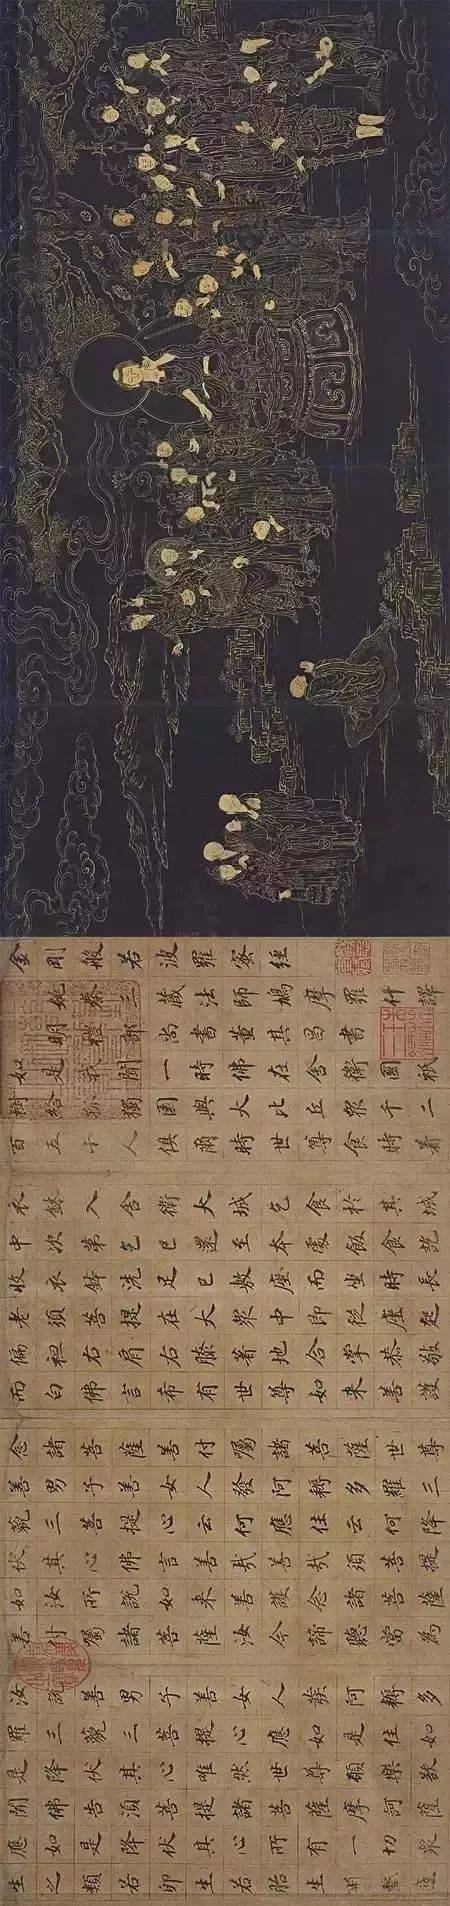 金剛般若波羅蜜經
姚秦三藏法師鳩摩羅什譯
明禮部尚書董其昌書
如是我聞一時佛在舍衛國祇
樹給孤獨園與大比丘眾千二
百五十人俱爾時世尊食時着
衣鉢入舍衛大城乞食於其城
中次第乞已還至本處飯食訖
收衣鉢洗足已敷座而坐時長
老須菩提在大眾中即從座起
偏袒右肩右膝著地合掌恭敬
而白佛言希有世尊如來善護
念諸菩薩善付囑諸菩薩世尊
善男子善女人發阿耨多羅三
藐三菩提心云何應住云何降
伏其心佛言善哉善哉須菩提
如汝所說如來善護念諸菩薩
善付囑諸菩薩汝今諦聽當為
汝說善男子善女人發阿耨多
羅三藐三菩提心應如是住如
是降伏其心唯然世尊願樂欲
聞佛告須菩提諸菩薩摩訶薩
應如是降伏其心所有一切眾
生之類若卵生若胎生